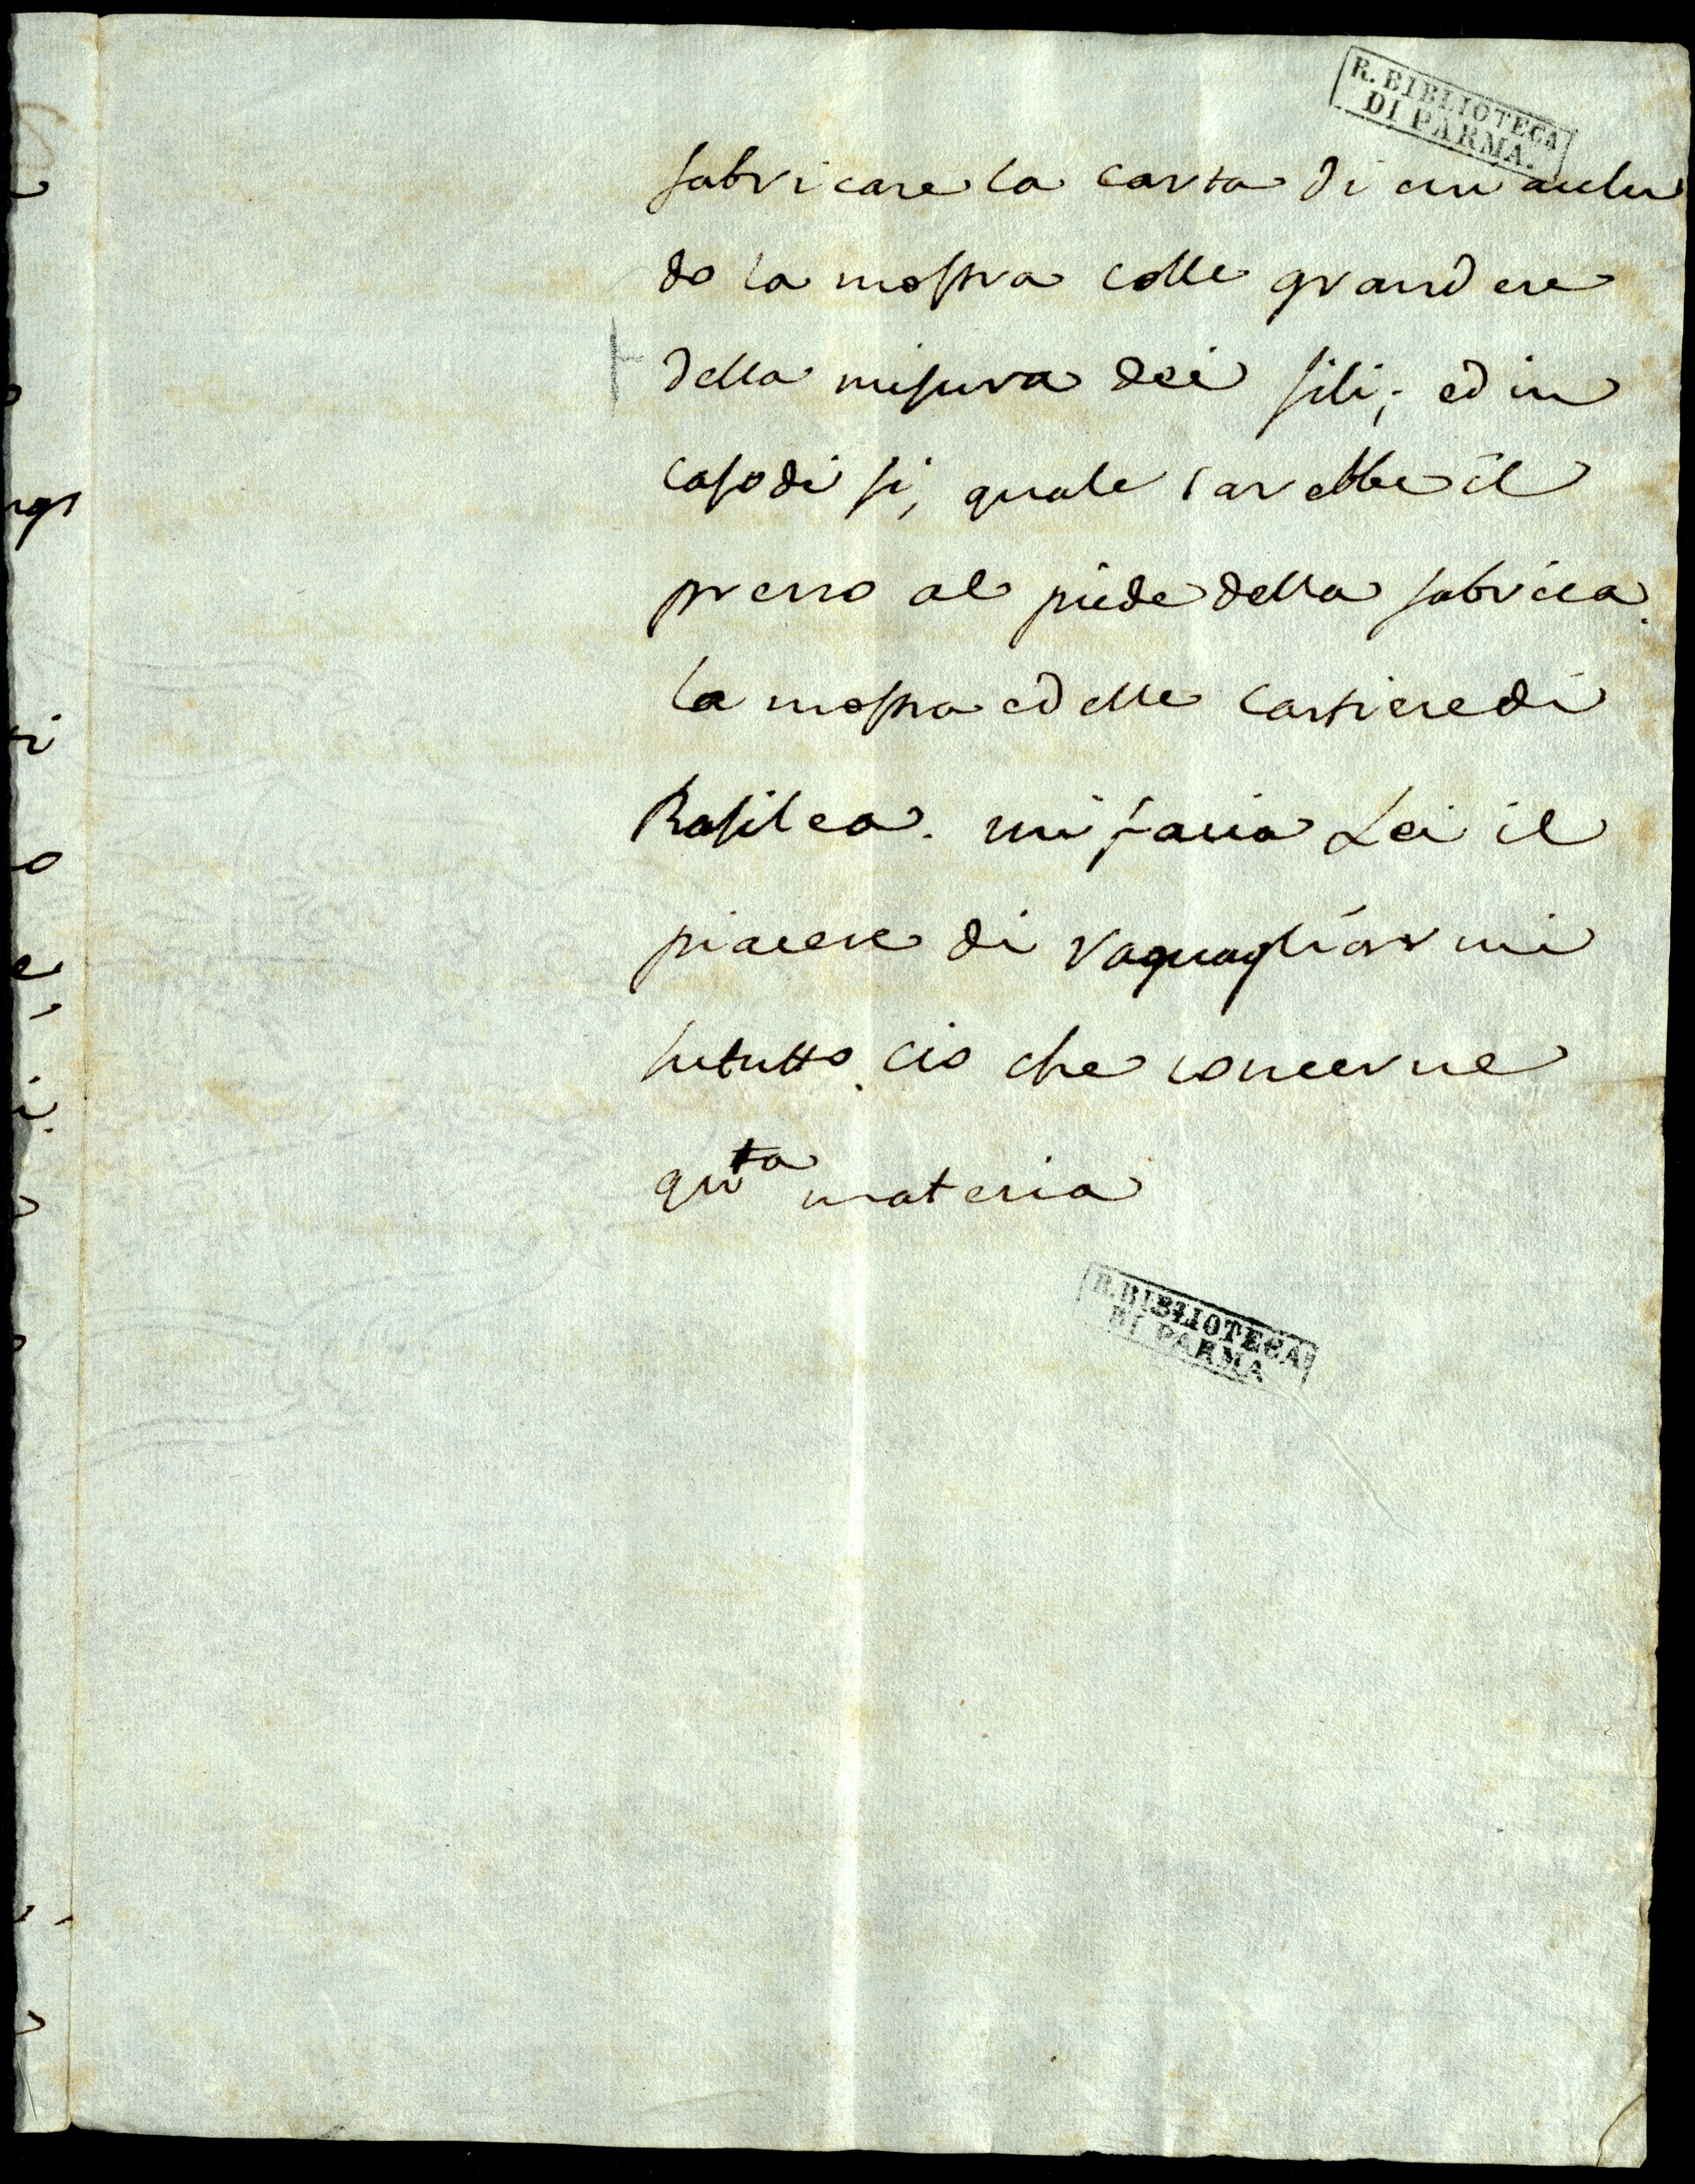 R. BIBLIOTECA
DI PARMA.
fabricare la carta di cui
do la mostra colle grandeze
della misura dei fili; ed in
caso di si, quale sarebbe il
prezzo al piede della fabrica.
la mostra ed elle cartiere di
Basilea. mi facia Lei il
piacere di raguagliarmi
su tutto cio che concerne
qu.ta materia
R. BIBLIOTECA
DI PARMA